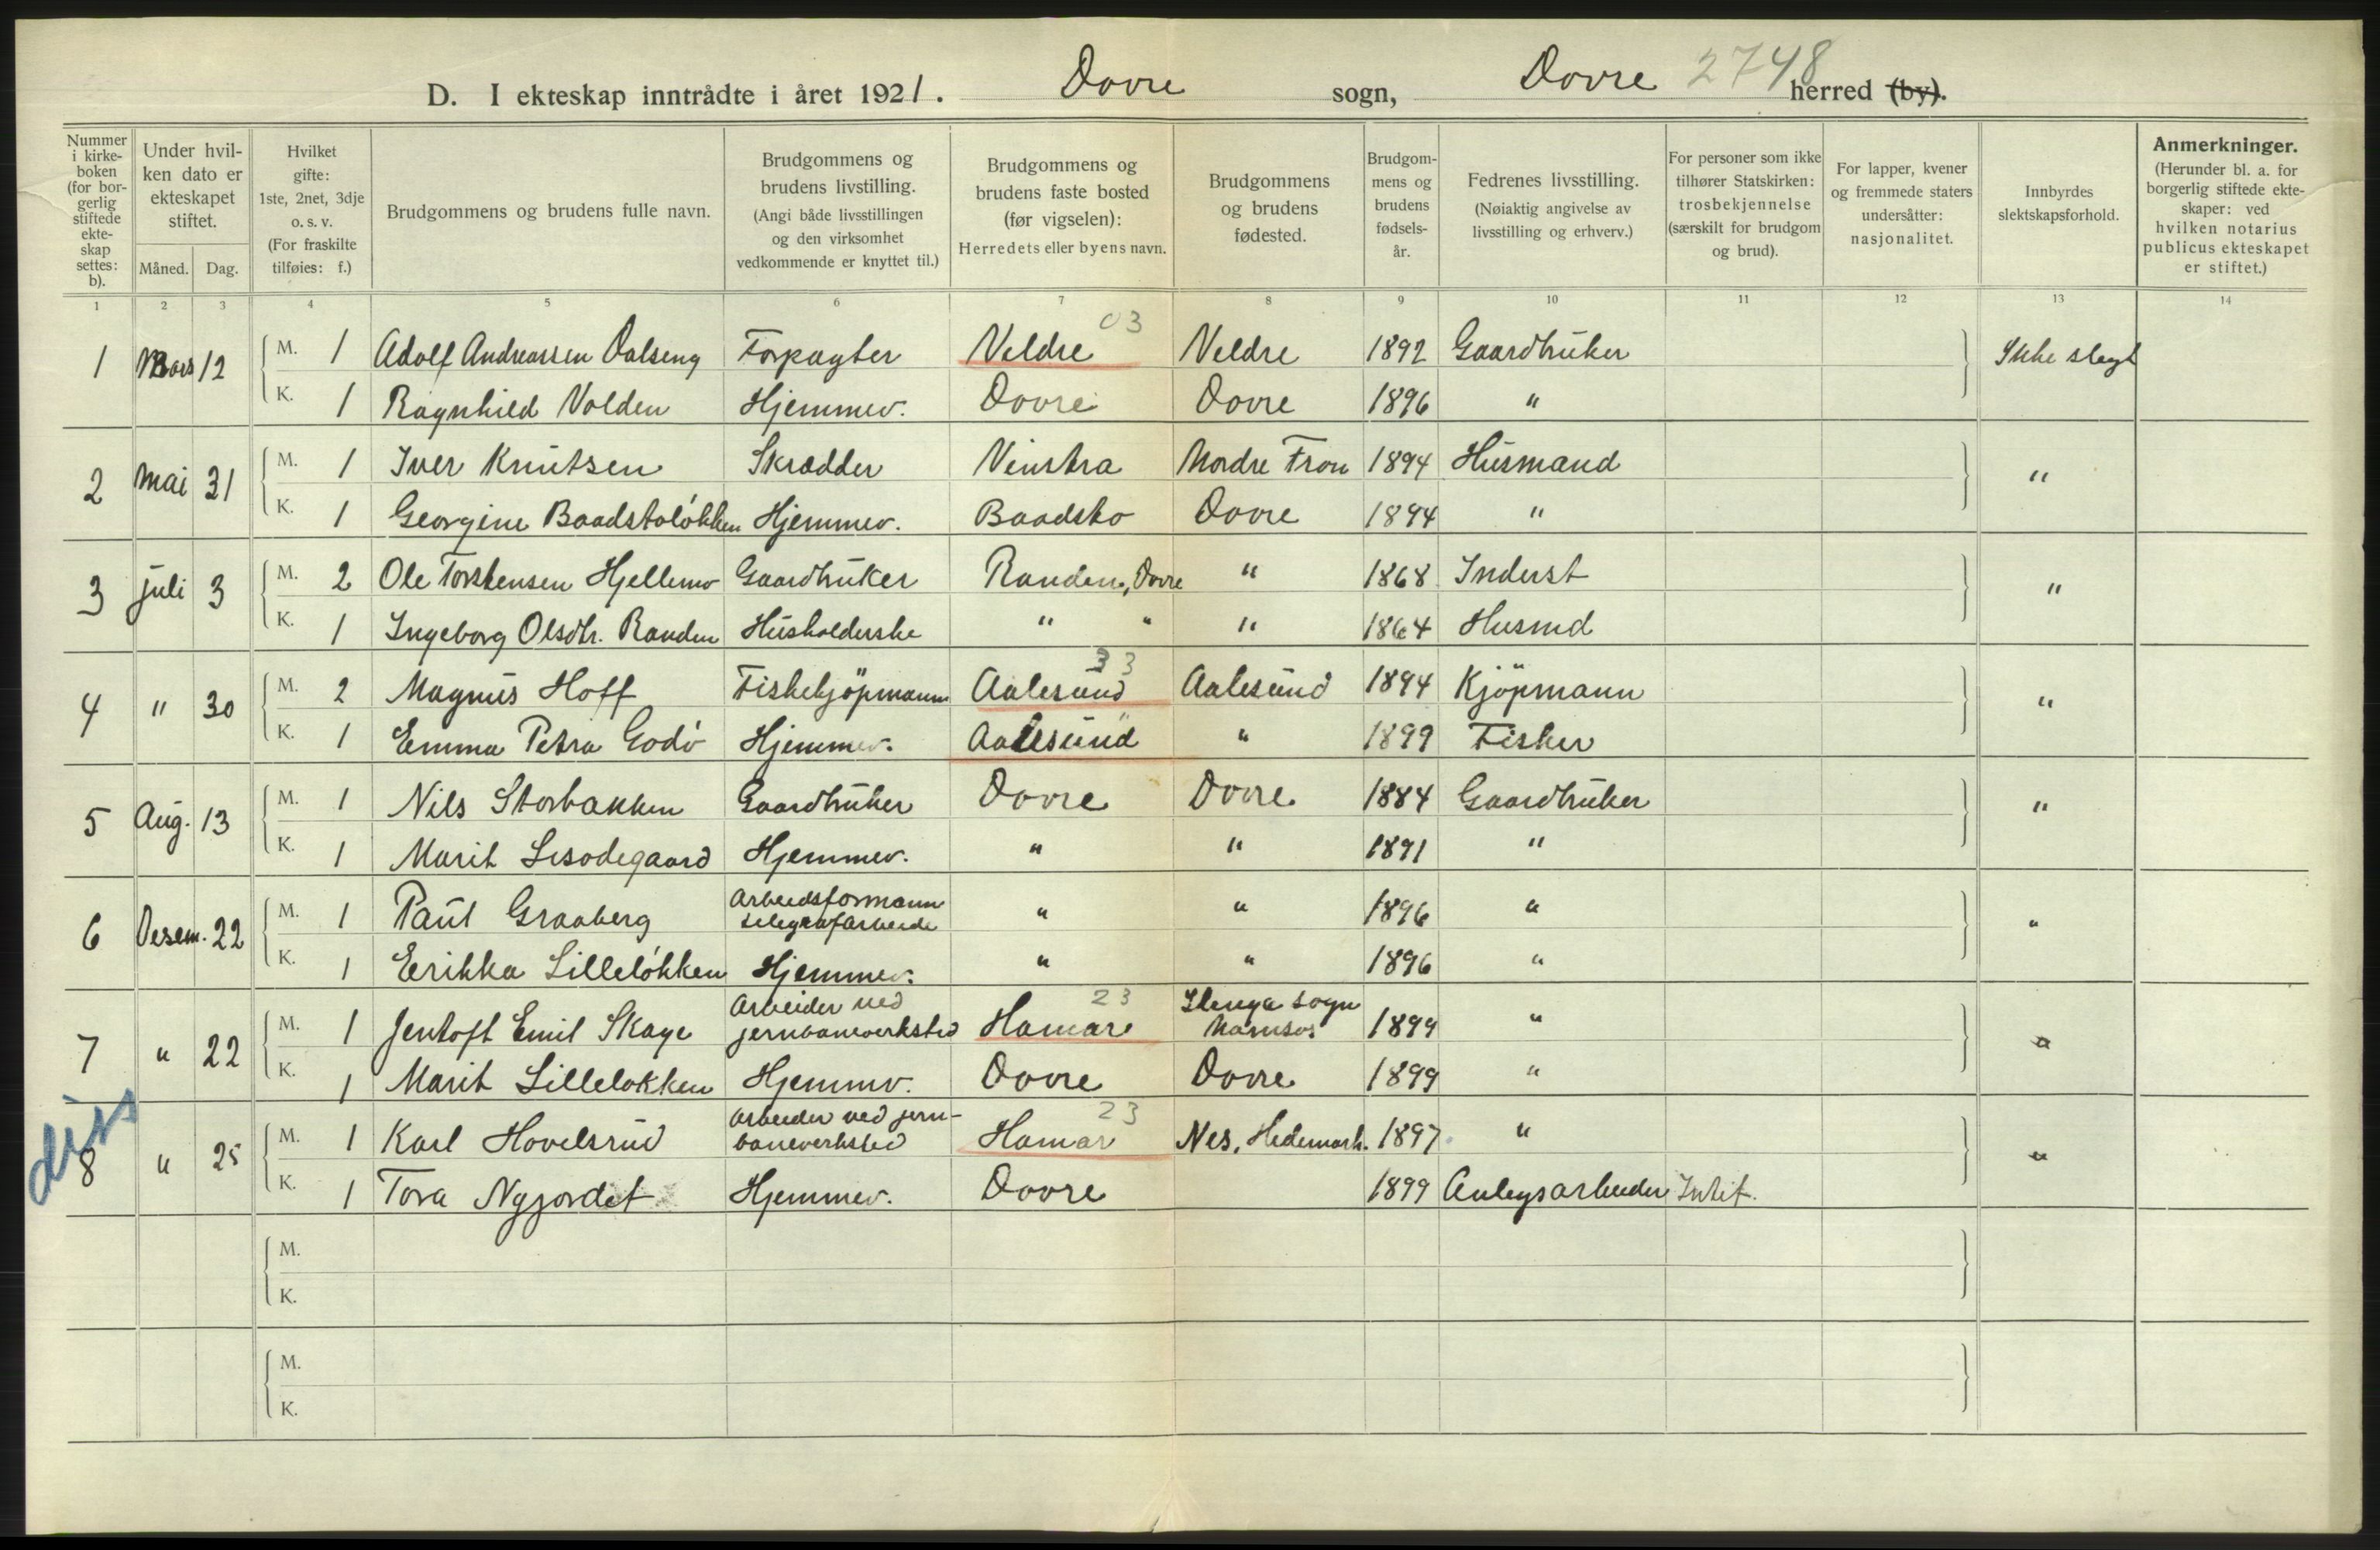 D. I ekteskap inntrådte i året 1921. Dovre sogn, Dovre 2748 herred (by).
Nummer i kirke-boken (for bor-gerlig stiftede ekte-skap settes: b).
Under hvil-ken dato er ekteskapet stiftet.
Måned. Dag.
Hvilket gifte: 1ste, 2net, 3dje o. s. v. (For fraskilte tilføies: f.)
Brudgommens og brudens fulle navn.
Brudgommens og brudens livstilling. (Angi både livsstillingen og den virksomhet vedkommende er knyttet til.)
Brudgommens og brudens faste bosted (før vigselen): Herredets eller byens navn.
Brudgommens og brudens fødested.
Brudgom-mens og brudens fødsels-år.
Fedrenes livsstilling. (Nøiaktig angivelse av livsstilling og erhverv.)
For personer som ikke tilhører Statskirken: trosbekjennelse (særskilt for brudgom og brud).
For lapper, kvener og fremmede staters undersåtter: nasjonalitet.
Innbyrdes slektskapsforhold.
Anmerkninger. (Herunder bl. a. for borgerlig stiftede ekte-skaper: ved hvilken notarius publicus ekteskapet er stiftet.)
1 2 3 4 5 6 7 8 9 10 11 12 13 14
03
1 Mars 12 M. 1 Adolf Andreassen Dalseng Forpagter Veldre Veldre 1892 Gaardbruker Ikke slegt
K. 1 Ragnhild Volden Hjemmev. Dovre Dovre 1896 "
2 Mai 31 M. 1 Iver Knutsen Skrædder Vinstra Nordre Fron 1894 Husmand "
K. 1 Georgine Baadstoløkken Hjemmev. Baadsto Dovre 1894 "
3 juli 3 M. 2 Ole Torstensen Hjellemo Gaardbruker Randen, Dovre " 1868 Inderst "
K. 1 Ingeborg Olsdtr. Randen Husholderske " " " 1864 Husmd
33
4 " 30 M. 2 Magnus Hoff Fiskekjöpmann Aalesund Aalesund 1894 Kjöpmann "
K. 1 Emma Petra Godø Hjemmev. Aalesund " 1899 Fisker
5 Aug. 13 M. 1 Nils Storbakken Gaardbruker Dovre Dovre 1884 Gaardbruker "
K. 1 Marit Lisodegaard Hjemmev. " " 1891 "
6 Desem. 22 M. 1 Paul Graaberg Arbeidsformann telegrafarbeide " " 1896 " "
K. 1 Erikka Lilleløkken Hjemmev. " " 1896 "
23
7 " 22 M. 1 Jentoft Emil Skage Arbeider ved jernbaneverksted Hamar sogn Namsos 1899 " "
K. 1 Marit Lilleløkken Hjemmv. Dovre Dovre 1899 "
diss
23
8 " 25 M. 1 Karl Hovelsrud Arbeider ved jern-baneverksted Hamar Nes, Hedemark. 1897 " "
K. 1 Tora Nyjordet Hjemmev. Dovre 1899 Anlegsarbeider
M.
K.
M.
K.